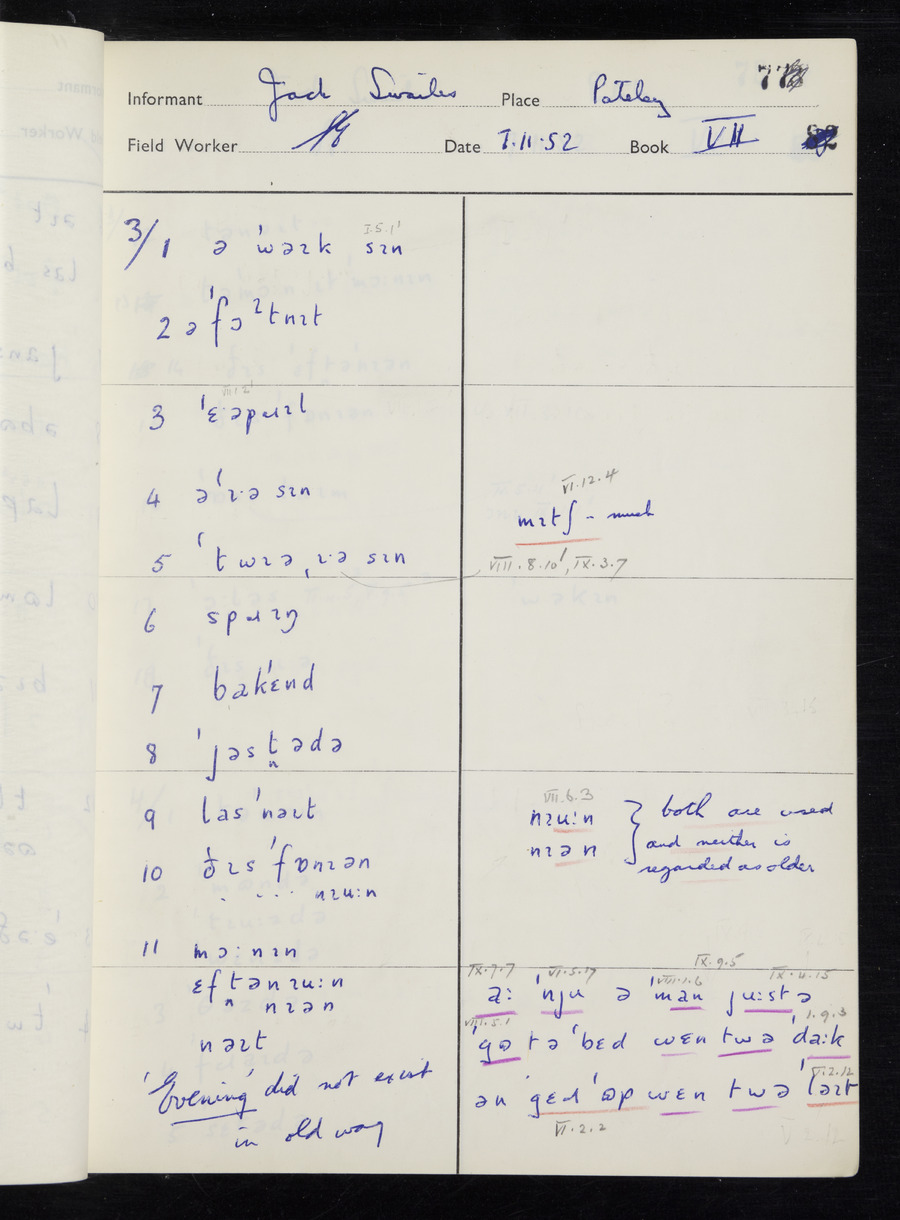 Informant Jack Swailes Place Pateley
Field Worker Date 7.11.52 Book VII
I.5.1'
3/1 ə ˈwəɪk sɪn
2 ə ˈfɔʔtnɪt
VII.1.2'
3 ˈɛəpaɪl
4 əˈɪ·ə sɪn
5 ˈtwɪəˌɪ·ə sɪn
6 spaɪŋ
7 bakˈɛnd
8 ˈjəst̪ədə
n
9 lasˈnəɪt
10 ðɪsˈfɒnɪən
. . . . nɪu:n
11 mɔ:nɪn
ɛft̪ənɪu:n
n nɪən
nəɪt
'Evening' did not exist
in old way
VI.12.4
mɪtʃ - much
VIII.8.10', IX.3.7
VII.6.3
nɪu:n } both are used
nɪən and neither is
regarded as older
IX.7.7 VI.5.17 VIII.1.6 IX.9.5 IX.4.15
a: ˈnju ə ˈman ju:stə
VIII.5.1 I.9.3
ˈgə tə ˈbɛd wɛn twə ˈda:k
V.2.12
ən ˈgɛd ˈɒp wɛn twə ˈləɪt
VI.2.2